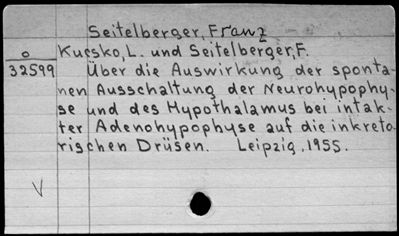 Seitelberger, Franz
o Kucsko, L. und Seitelberger, F.
32599 Über die Auswirkung der sponta-
nen Ausschaltung der Neurohypophy-
se und des Hypothalamus bei intak-
ter Adenohypophyse auf die inkreto-
rischen Drüsen. Leipzig, 1955.
V